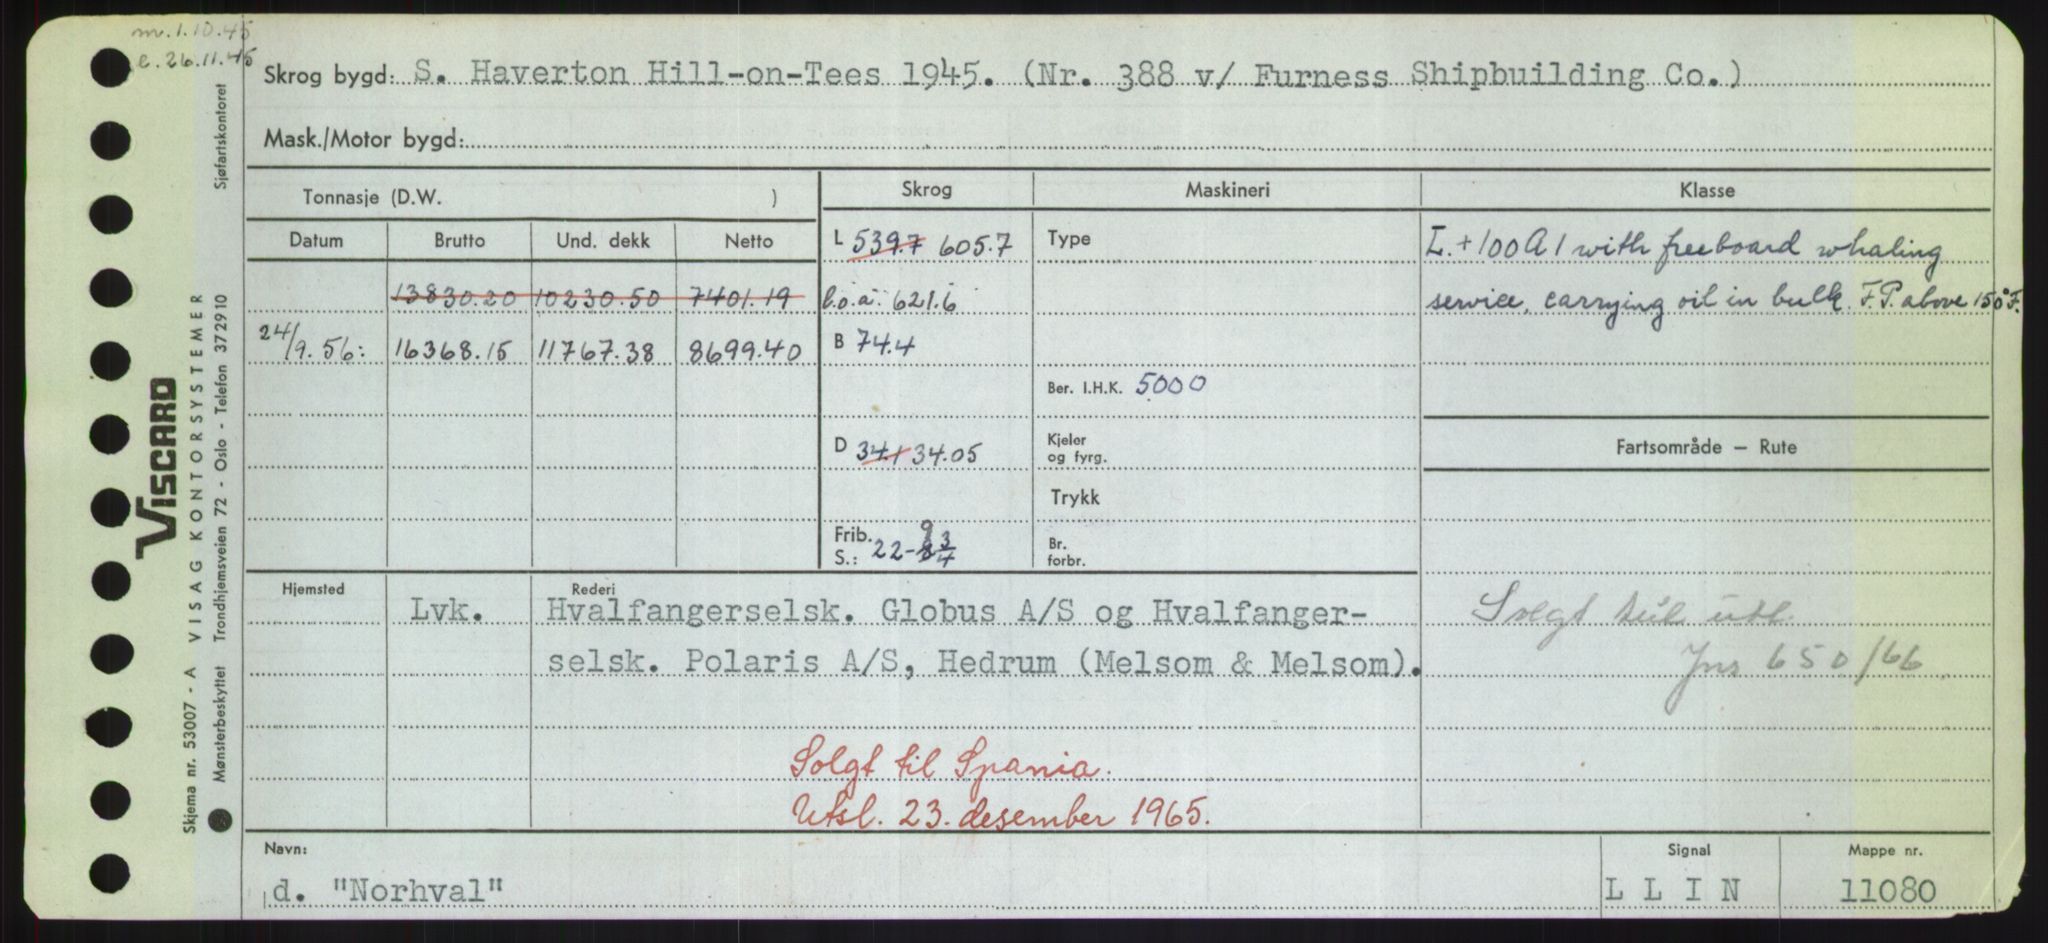 m. 1.10.45
e. 26.11.45
Skrog bygd: S. Haverton Hill-on-Tees 1945. (Nr. 388 v/ Furness Shipbuilding Co.)
Mask./Motor bygd:
Tonnasje (D.W. )
Skrog
Maskineri
Klasse
Datum
Brutto
Und. dekk
Netto
L 539.7 605.7
Type
L. + 100 A 1 with freeboard whaling
13830.20 10230.50 7401.19
l.o.a. 621.6
service, carrying oil in bulk. F.P. above 150°F.
24/9.56: 16368.15 11767.38 8699.40
B 74.4
Ber. I.H.K. 5000
D 34.1 34.05
Kjeler
og fyrg.
Fartsområde — Rute
Trykk
Frib.
S.: 22-8 9 3/4
Br.
forbr.
Hjemsted
Rederi
Lvk. Hvalfangerselsk. Globus A/S og Hvalfanger-
selsk. Polaris A/S, Hedrum (Melsom & Melsom).
Solgt til utl.
Jnr 650/66
Solgt til Spania.
Utsl. 23. desember 1965.
Navn:
Signal
Mappe nr.
d. "Norhval"
L L I N
11080
Skjema nr. 53007 - A VISAG KONTORSYSTEMER
VISCARD
Mønsterbeskyttet Trondhjemsveien 72 - Oslo - Telefon 372910 Sjøfartskontoret